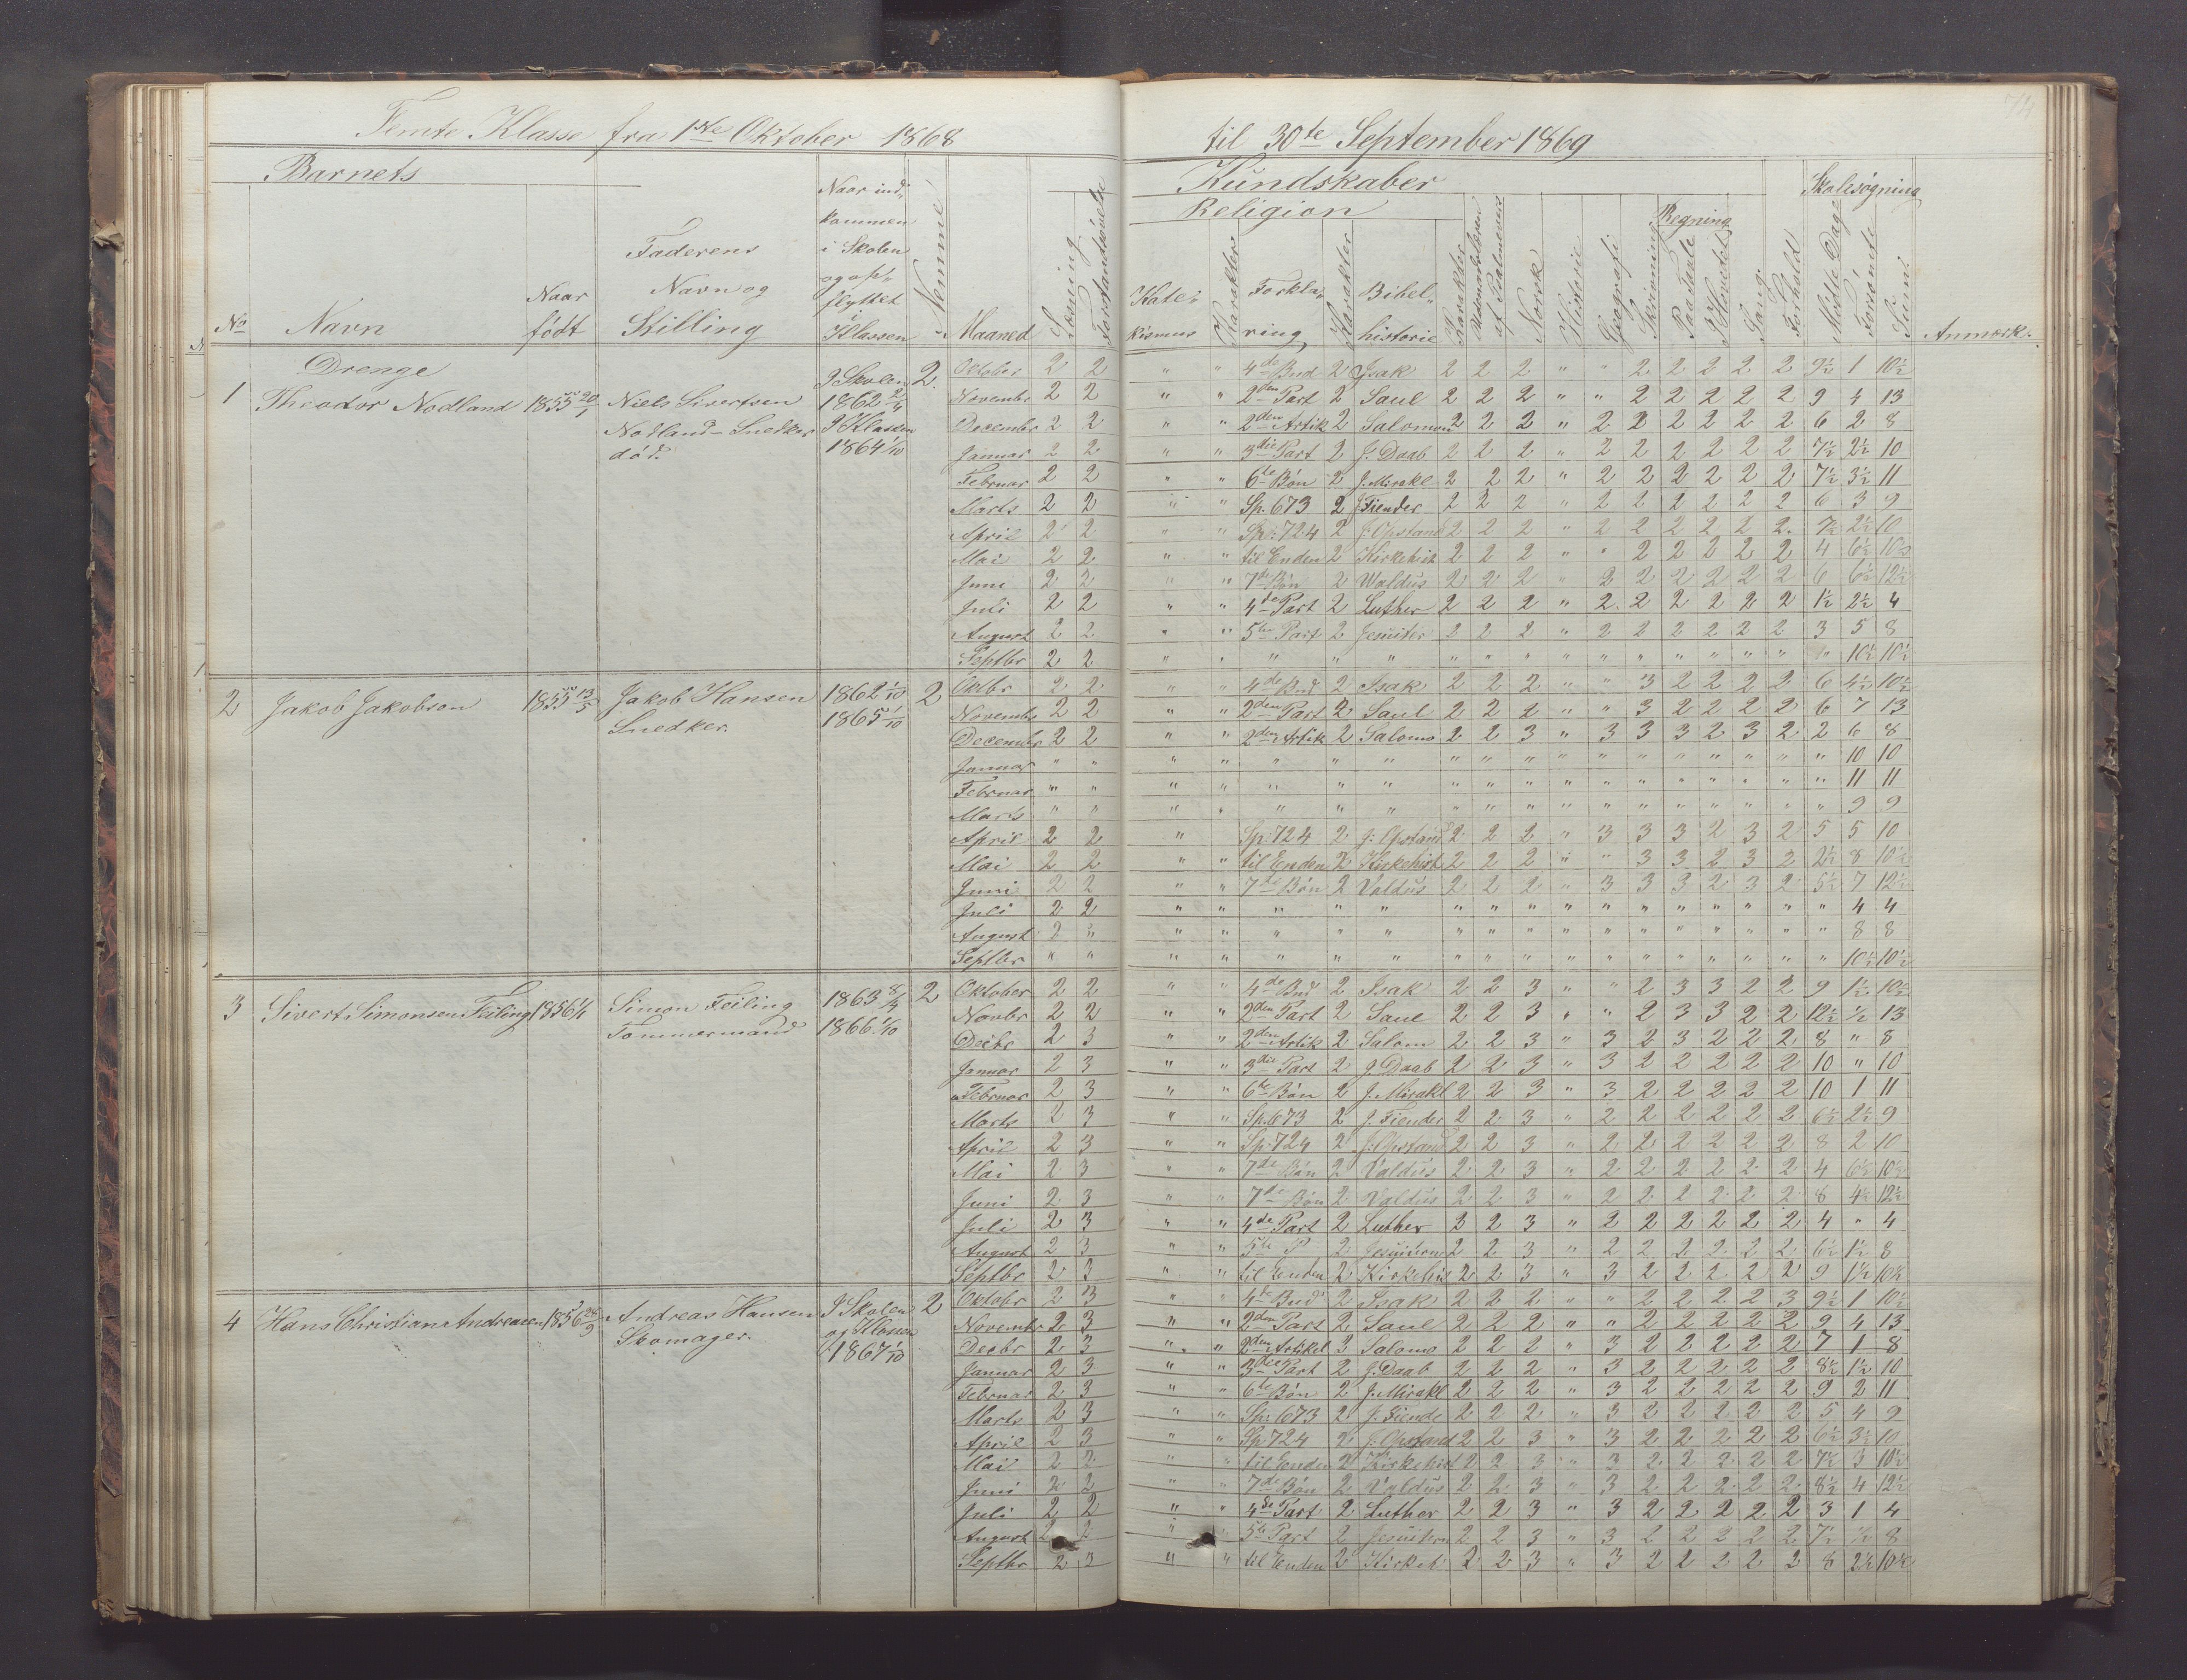 Femte Klasse fra 1ste Oktober 1868
til 30te September 1869
Barnets
Kundskaber
Skolesøgning
Religion
Regning
No
Navn
Naar født
Faderens Navn og Stilling
Naar indkommen i Skolen og opflyttet i Klassen
Nemme
Maaned
Læsning
Forstandsøvelse
Katekismus
Karakter
Forklaring
Karakter
Bibelhistorie
Karakter
Udenadslæsen af Salmevers
Norsk
Historie
Geografi
Skrivning
Paa Tavle
I Hovedet
Sang
Forhold
Mødte Dage
Forsømte
Sum
Anmærk.
Drenge
1 Theodor Nodland 1855 20/1 Niels Sivertsen Nodland - Snedker død. I Skolen 1862 2/4 I Klassen 1864 1/10 2
Oktober 2 2 " " 4de Bud 2 Isak 2 2 2 " " 2 2 2 2 2 9½ 1 10½
Novembr 2 2 " " 2den Part 2 Saul 2 2 2 " " 2 2 2 2 2 9 4 13
Decembr 2 2 " " 2den Artik 2 Salomon 2 2 2 " 2 2 2 2 2 2 6 2 8
Januar 2 2 " " 3die Part 2 J: Daab 2 2 2 " 2 2 2 2 2 2 7½ 2½ 10
Februar 2 2 " " 6te Bøn 2 J. Mirakl 2 2 2 " 2 2 2 2 2 2 7½ 3½ 11
Marts 2 2 " " Sp. 673 2 J Fiender 2 2 2 " 2 2 2 2 2 2 6 3 9
April 2 2 " " Sp: 724 2 J: Opstand 2 2 2 " 2 2 2 2 2 2. 7½ 2½ 10
Mai 2 2 " " til Enden 2 Kirkehist 2 2 2 " " 2 2 2 2 2 4 6½ 10½
Juni 2 2 " " 7de Bøn 2 Waldus 2 2 2 " 2 2 2 2 2 2 6 6½ 12½
Juli 2 2 " " 4de Part 2 Luther 2 2 2 " 2. 2 2 2 2 2 1½ 2½ 4
August 2 2 " " 5te Part 2 Jesuiter 2 2 2 " 2 2 2 2 2 2 3 5 8
Septbr 2 2 " " " " " " " " " " " " " " " " 10½ 10½
2 Jakob Jakobson 1855 13/5 Jakob Hansen Snedker. 1862 1/10 1865 1/10 2
Oktbr 2 2 " " 4de Bud 2 Isak 2 2 2 " " 3 2 2 2 2 6 4½ 10½
Novembr 2 2 " " 2den Part 2 Saul 2 2 2 " " 3 2 2 2 2 6 7 13
Decembr 2 2 " " 2den Artik 2 Salomo 2 2 3 " 3 3 3 2 3 2 2 6 8
Januar " " " " " " " " " " " " " " " " " " " 10 10
Februar " " " " " " " " " " " " " " " " " " " 11 11
Marts " " " " " " " " " " " " " " " " " " " 9 9
April 2 2 " Sp: 724 2 J: Opstand 2 2 2 " 3 3 3 2 3 2 5 5 10
Mai 2 2 " " til Enden 2 Kirkehist 2 2 2 " " 3 3 2 3 2 2½ 8 10½
Juni 2 2 " " 7de Bøn 2 Valdus 2 2 2 " 3 3 3 2 3 2 5½ 7 12½
Juli 2 2 " " " " " " " " " " " " " " " " " 4 4
August 2 " " " " " " " " " " " " " " " " " " 8 8
Septbr " " " " " " " " " " " " " " " " " " " 10½ 10½
3 Sivert Simonsen Feiling 1856 1/1 Simon Feiling Tømmermand 1863 8/4 1866. 1/10 2
Oktober 2 2 " " 4de Bud 2 Isak 2 2 3 " " 2 3 3 2 2 9 1½ 10½
Novbr 2 2 " " 2den Part 2 Saul 2 2 3 " " 2 3 3 2 2 12½ ½ 13
Decbr 2 3 " " 2den Artik 2 Salom 2 2 3 " 3 2 3 2 2 2 8 " 8
Januar 2 3 " " 3die Part 2 J. Daab 2 2 3 " 3 2 2 2 2 2 10 " 10
Februar 2 3 " " 6te Bøn 2 J. Mirakl 2 2 3 " 3 2 2 2 2 2 10 1 11
Marts 2 3 " " Sp. 673 2 J. Fiender 2 2 3 " 2 2 2 2 2 2 6½ 2½ 9
April 2 3 " " Sp: 724 2 J: Opstand 2 2 3 " 2 2 2 2 2 2 8 2 10
Mai 2 3 " " 7de Bøn 2 Valdus 2 2 3 " 2 2 2 2 2 2 4 6½ 10½
Juni 2 3 " " 7de Bøn 2 Valdus 2 2 3 " 2 2 2 2 2 2 8 4½ 12½
Juli 2 3 " " 4de Part 2 Luther 2 2 3 " 2 2 2 2 2 2 4 " 4
August 2 3 " " 5te P 2 Jesuiterne 2 2 3 " 2 2 2 2 2 2 6½ 1½ 8
Septbr 2 3 " " til Enden 2 Kirkehis 2 2 3 " 3 2 2 2 2 2 9 1½ 10½
4 Hans Christian Andreasen 1856 28/9 Andreas Hansen Skomager. I Skolen og Klassen 1867 1/10 2
Oktobr 2 3 " " 4de Bud 2 Isak 2 2 2 " " 2 2 2 2 3 9½ 1 10½
Novembr 2 3 " " 2den Part 2 Saul 2 2 2 " " 2 2 2 2 2 9 4 13
Decbr 2 3 " " 2den Artikel 3 Salomo 2 2 2 " 3 2 2 2 2 2 7 1 8
Januar 2 3 " " 3die Part 2 J. Daab 2 2 2 " 3 2 2 2 2 2 8½ 1½ 10
Februar 2 3 " " 6te Bøn 2 J. Mirakl 2 2 2 " 3 2 2 2 2 2 9 2 11
Marts 2 3 " " Sp: 673 2 J. Fiende 2 2 2 " 3 2 2 2 2 2 5 4 9
April 2 3 " " Sp 724 2 J: Opstand 2 2 3 " 3 2 2 2 2 2 6½ 3½ 10
Mai 2 2 " " til Enden 2 Kirkehist 2 2 3 " 3 2 2 2 2 2 7½ 3 10½
Juni 2 2 " " 7de Bøn 2 Valdus 2 2 3 " 3 2 2 2 2 2 8½ 4 12½
Juli 2 2 " " 4de Part 2 Luther 2 2 3 " 3 2 2 2 2 2 3 1 4
August 2 2 " 5te Part 2 Jesuitern 2 2 3 " 3 2 2 2 2 2 7½ ½ 8
Septbr 2 3 " " til Enden 2 Kirkeh 2 2 3 " 3 2 2 2 2 2 8 2½ 10½